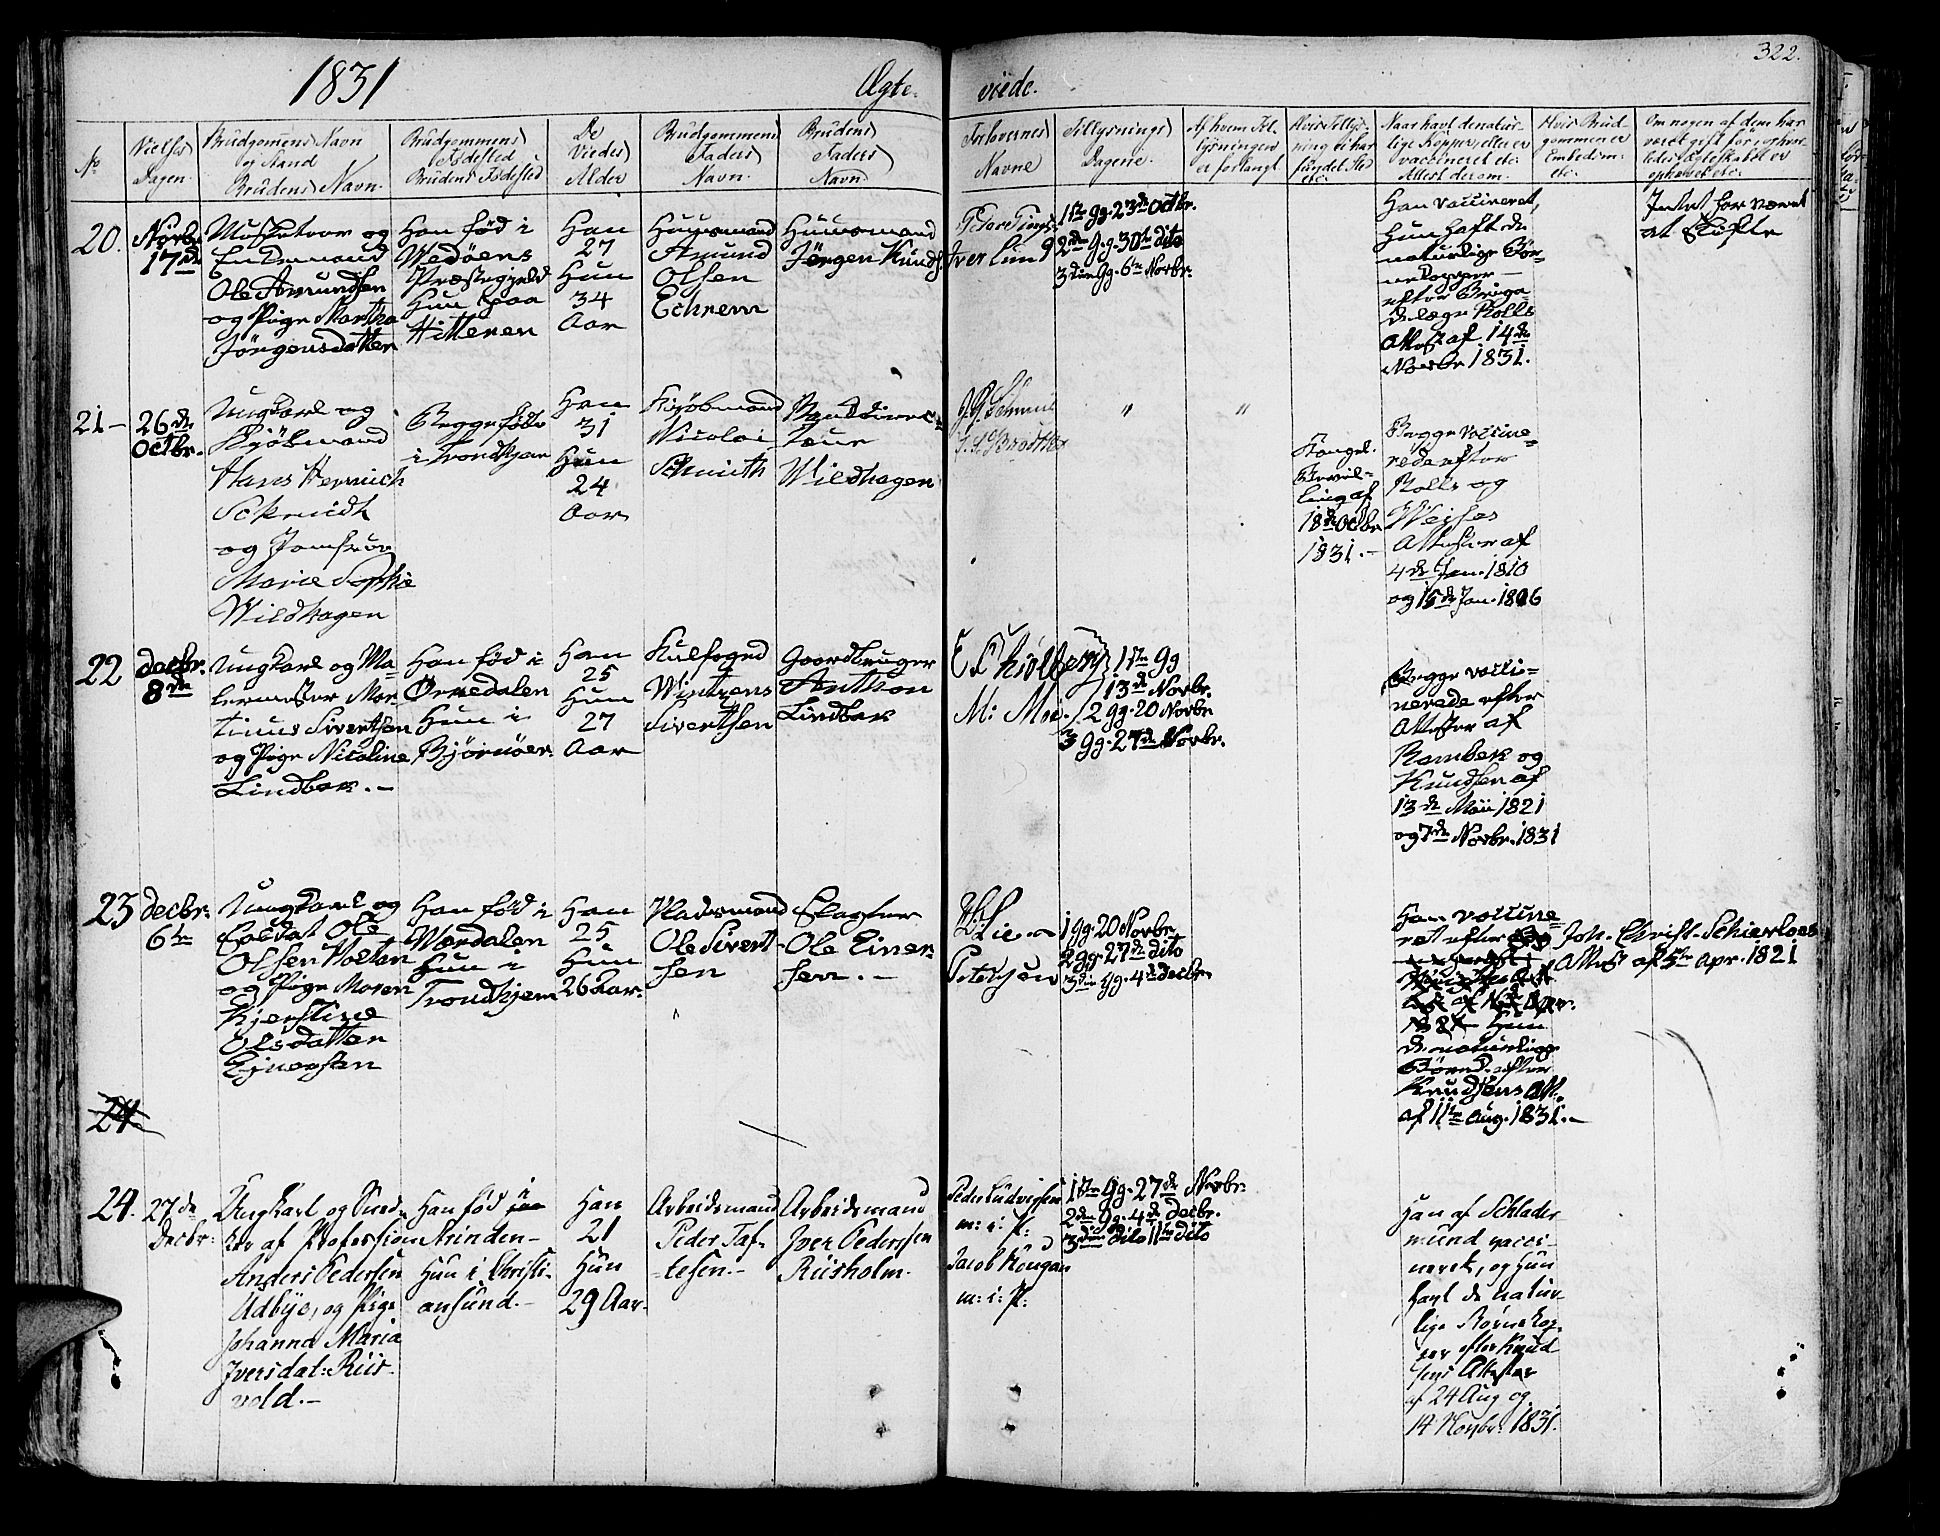 322.
1831
Ægte-
viede.
No
Vielses
Dagen.
Brudgommens Navn
og Stand
Brudens Navn.
Brudgommens
Fødested
Brudens Fødested
De
Viedes
Alder
Brudgommens
Faders
Navn.
Brudens
Faders
Navn
Forlovernes
Navne
Tillysnings
Dagene.
Af hvem Til-
lysningen
er forlangt
Naar havt de natur-
lige Kopper, eller er
vaccineret etc:
Attest derom.
Hvis Brud-
gommen er
Embedsm:
etc.
Om nogen af dem har
været gift før, og hvor-
ledes Ægteskabet er
ophævet etc:
20.
Novbr.
17de
Musketeer og
Ole Amundsen
og Pige Martha
Jörgensdatter
Han fød i
Medøens
Præstegjeld
Hun paa
Hitteren
Han
27
Hun
34
Aar
Huusmand
Amund
Olsen
Echrem
Huusmand
Jørgen Knuds.
Iver Lund
1ste Gg. 23de Octbr.
2den Gg. 30te dito
3die Gg. 6te Novbr.
Han vaccineret,
Hun haft de
naturlige Bør-
nekopper —
efter Briga
delæge Rolls
Attest af 14de
Novbr 1831.
Intet har været
at Skifte
21-
26de
Octbr.
Ungkarl og
Kjöbmand
Hans Hernich
Schmidt
og Jomfrue
Marie Sophie
Wildhagen
Begge fødte
i Trondhjem
Han
31
Hun
24
Aar
Kjöbmand
Nicolai
Schmidt
Wildhagen
" "
Kongel.
Bevil-
ling af
18de Octbr
1831.-
Begge vaccine-
rede efter
Rolls og
Weises
Attester af
4de Jan. 1810
og 15de Jan. 1806
22
Decbr.
8de
Ungkarl og Ma-
lermester Mar-
tinus Sivertsen
og Pige Nicoline
Lindbak.-
Han fød i
Ørkedalen
Hun i
Bjørnöer
Han
25
Hun
27
Aar
Sivertsen
Gaardbruger
Anthon
Lindbak
M: Moe.
1ste Gg
13de Novbr.
2 Gg. 20 Novbr
3 Gg. 27de Novbr.
Begge vacci-
nerede efter
Attester af
Rambek og
Knudsen af
13de Mai 1821
og 7de Novbr. 1831
23
Decbr:
6te
Ungkarl og
Soldat Ole
Olsen Holtan
og Pige Maren
Kjerstine
Olsdatter
Ejnersen
Han fød i
Værdalen
Hun i
Trondhjem
Han
25
Hun
26 Aar.
Pladsmand
Ole Sivert-
sen
Slagter
Ole Einer-
sen.-
Lie.-
Petersen
1 Gg. 20 Novbr.
2 Gg. 27de dito
3die Gg. 4de Decbr.
Han vaccine-
ret efter
Joh. Christ. Schierloes
Attest af 5te Apr. 1821
Hun
de naturlige
Börnek. efter
Knudsens Att.
af 11te Aug. 1831.-
24
24.
27de
Decbr:
Ungkarl og Sned-
ker af Profession
Anders Pedersen
Udbye, og Pige
Johanna Maria
Iversdat: Riis-
vold.-
Han fød i
Strinden-
Hun i Christi-
ansund.-
Han
21
Hun
29 Aar-
Arbeidsmand
Peder Taf-
tesen.-
Arbeidsmand
Iver Pedersen
Riisholm.
Peder Ludvigsen
m: i: P:
Jacob Hougan
m: i: P:
1ste Gg. 27de Novbr:
2den Gg. 4de Decbr.
3die dito 11te dito
Han af Schlader-
mund vacci-
neret, og Hun
havt de natur-
lige Børnekop-
per efter Knud-
sens Attester
af 24 Aug og
14 Novbr: 1831.